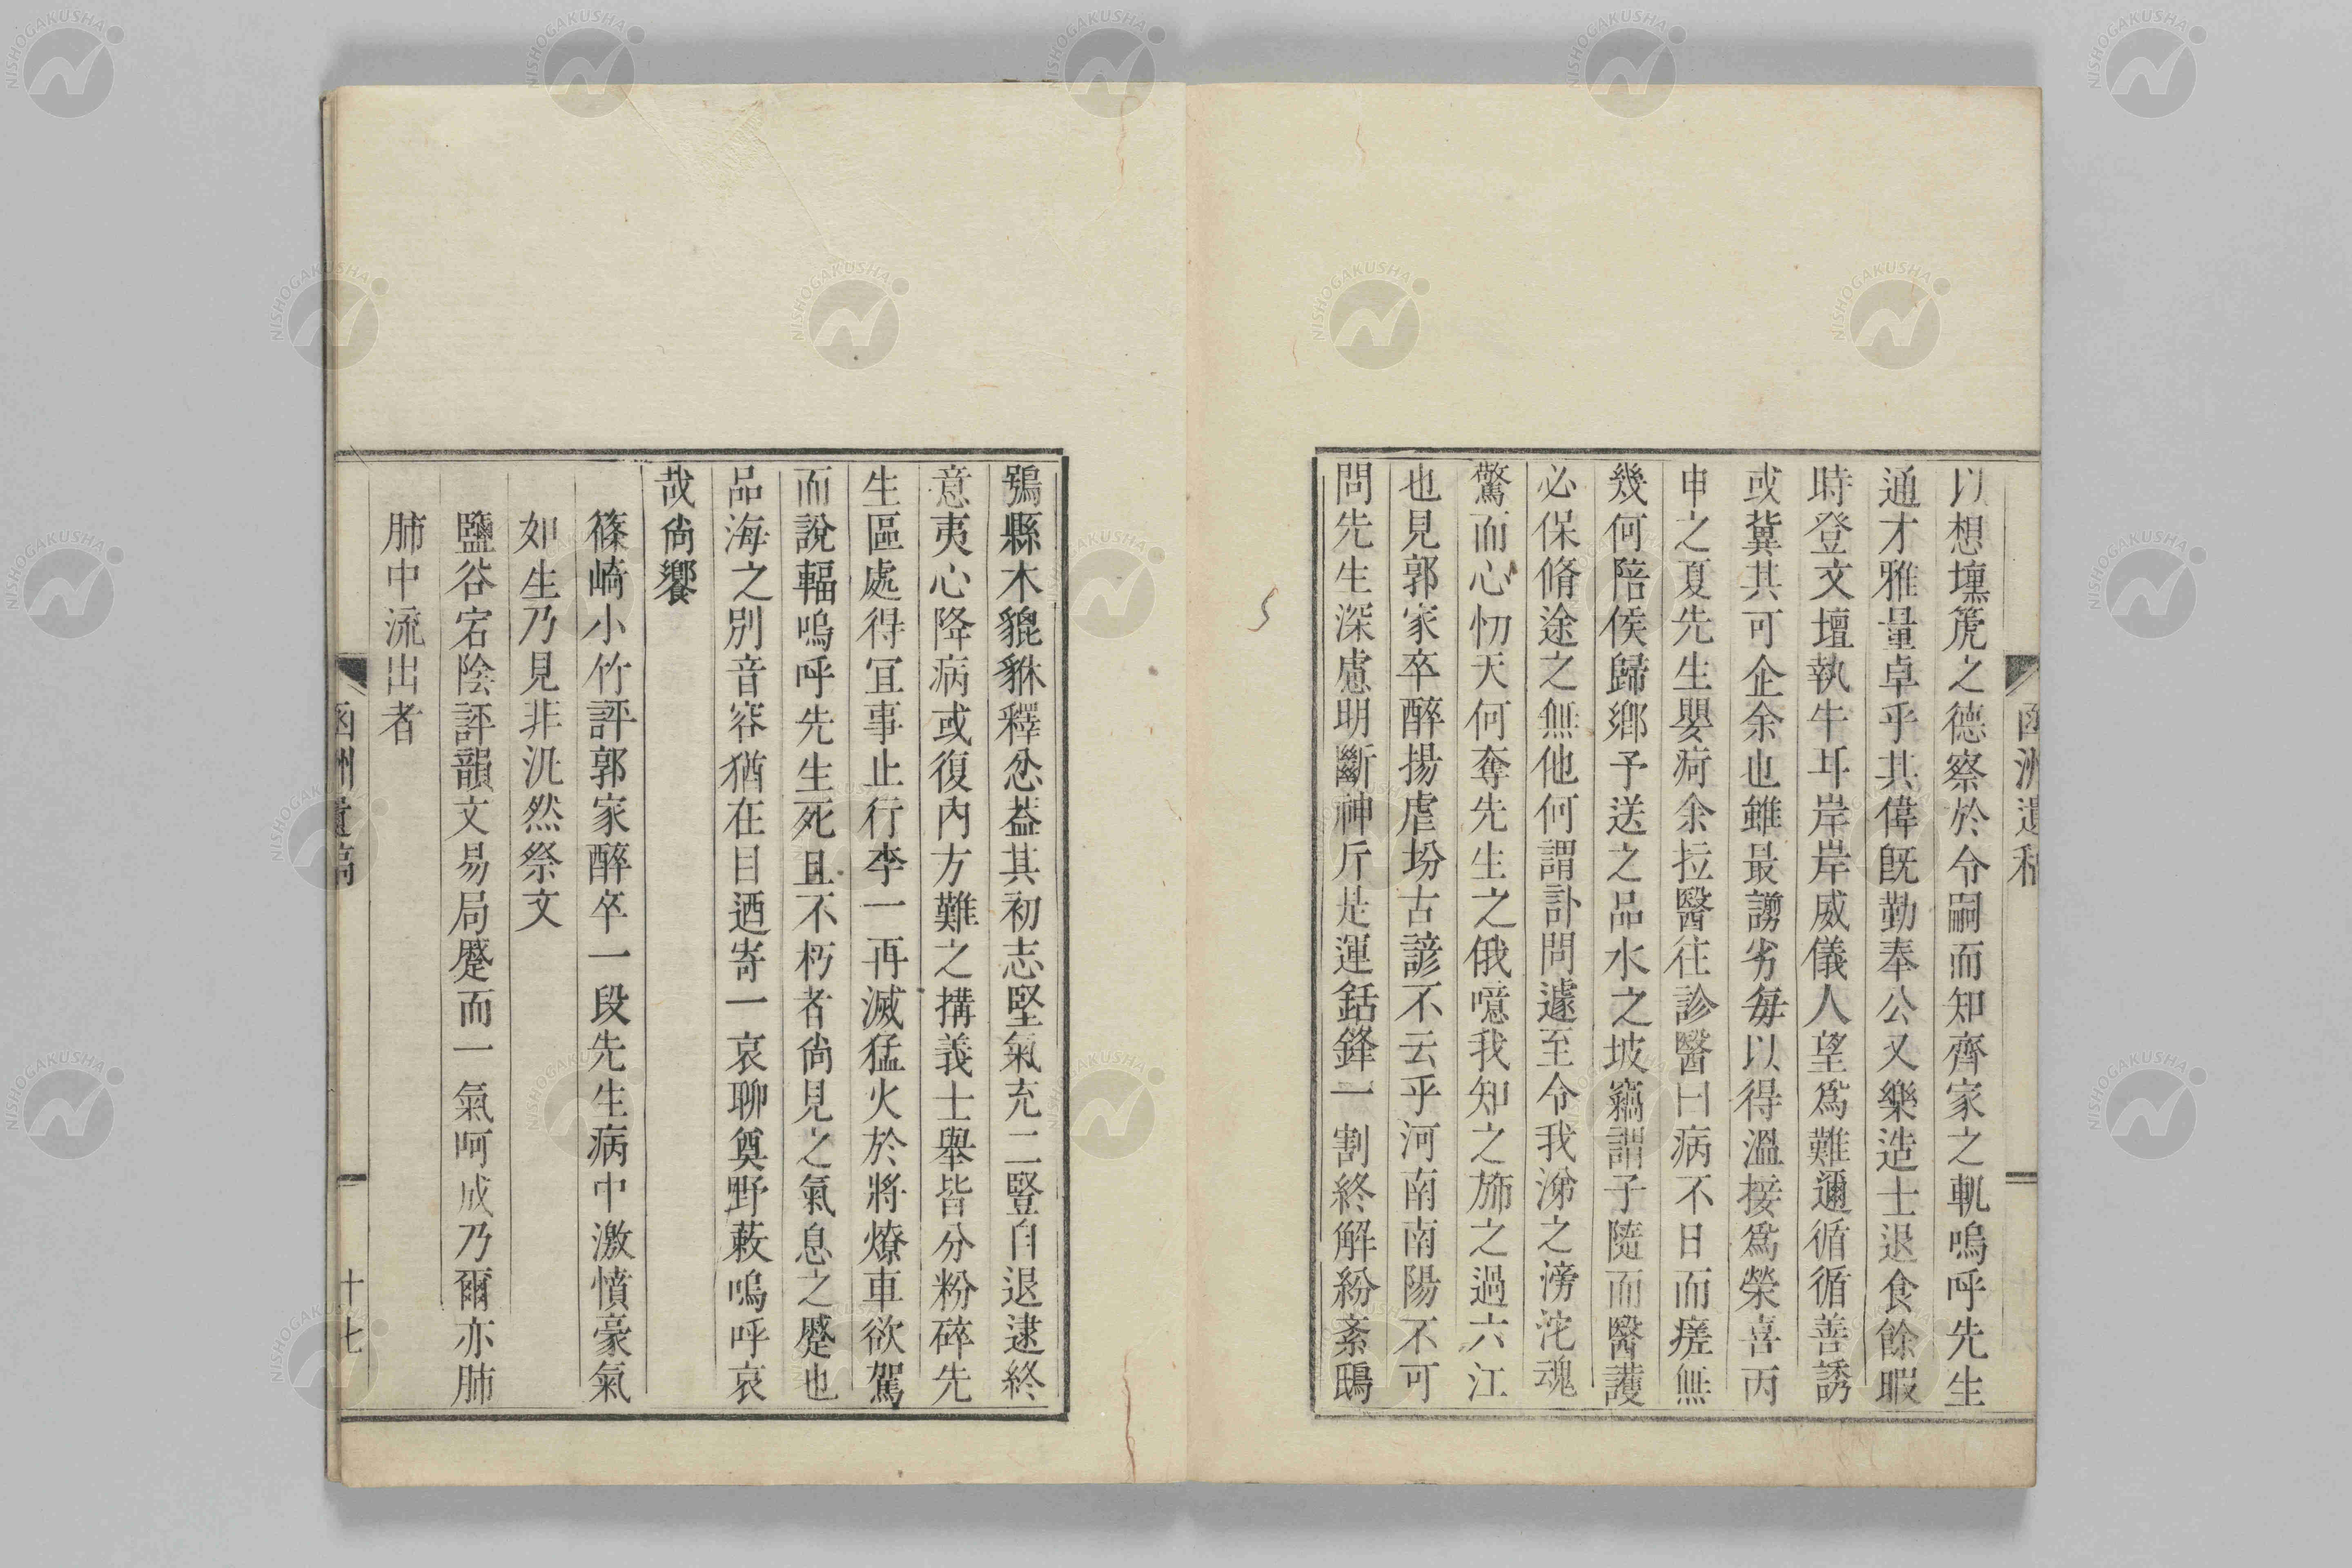 以想壎篪之德察於令嗣而知齊家之軌嗚呼先生
通才雅量卓乎其偉既勤奉公又樂造士退食餘暇
時登文壇執牛耳岸岸威儀人望爲難邇循循善誘
或冀其可企余也雖最謭劣每以得溫接爲榮喜丙
申之夏先生嬰痾余拉醫往診醫曰病不日而瘥無
幾何陪侯歸鄉予送之品水之坡竊謂子隨而醫護
必保脩途之無他何謂訃問遽至令我涕之滂沱魂
驚而心忉天何奪先生之俄噫我知之斾之過六江
也見郭家卒醉揚虐坋古諺不云乎河南南陽不可
問先生深慮明斷神斤是運銛鋒一割終解紛紊鴟
鴞縣木貔貅釋忿葢其初志堅氣充二豎自退逮終
意夷心降病或復內方難之搆義士舉皆分粉碎先
生區處得宜事止行李一再滅猛火於將燎車欲駕
而說輻嗚呼先生死且不朽者尙見之氣息之蹙也
品海之別音容猶在目迺寄一哀聊奠野蔌嗚呼哀
哉尙饗
篠崎小竹評郭家醉卒一段先生病中激憤豪氣
如生乃見非汎然祭文
鹽谷宕陰評韻文易局蹙而一氣呵成乃爾亦肺
肺中流出者
函洲遺稿
十七
NISHOGAKUSHA